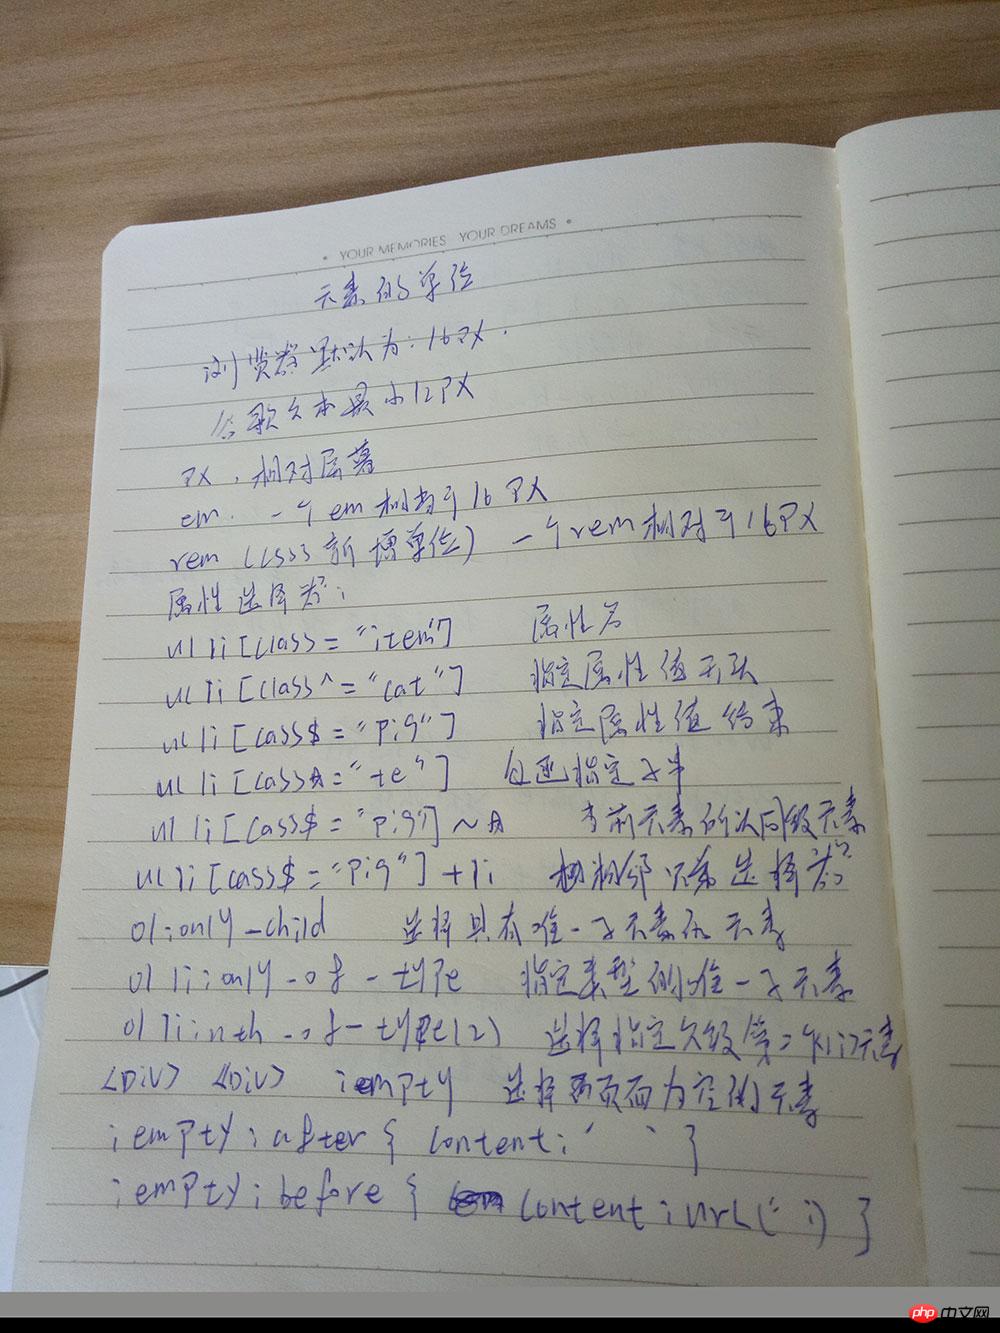 • YOUR MEMORIES YOUR DREAMS •
元素的单位
浏览器默认为:16PX.
谷歌文本最小12PX
PX . 相对屏幕
em. 一个em相当于16PX
rem (css3新增单位) 一个rem相对于16PX
属性选择器:
ul li [class="item"] 属性名
ul li [class^="cat"] 指定属性值开头
ul li [cass$="pig"] 指定属性值结束
ul li [cass*="te"] 包函指定子串
ul li [cass$="pig"] ~ * 当前元素的同级元素
ul li [cass$="pig"] + li 相邻选择器
ol :only-child 选择具有唯一子元素的元素
ol li:only-of-type 指定类型的唯一子元素
ol li:nth-of-type(2) 选择指定父级第二个li元素
<DiV> <DiV> :empty 选择页面为空的元素
:empty:after { content:' ' }
:empty:before { content:url(' ') }
php 中文网